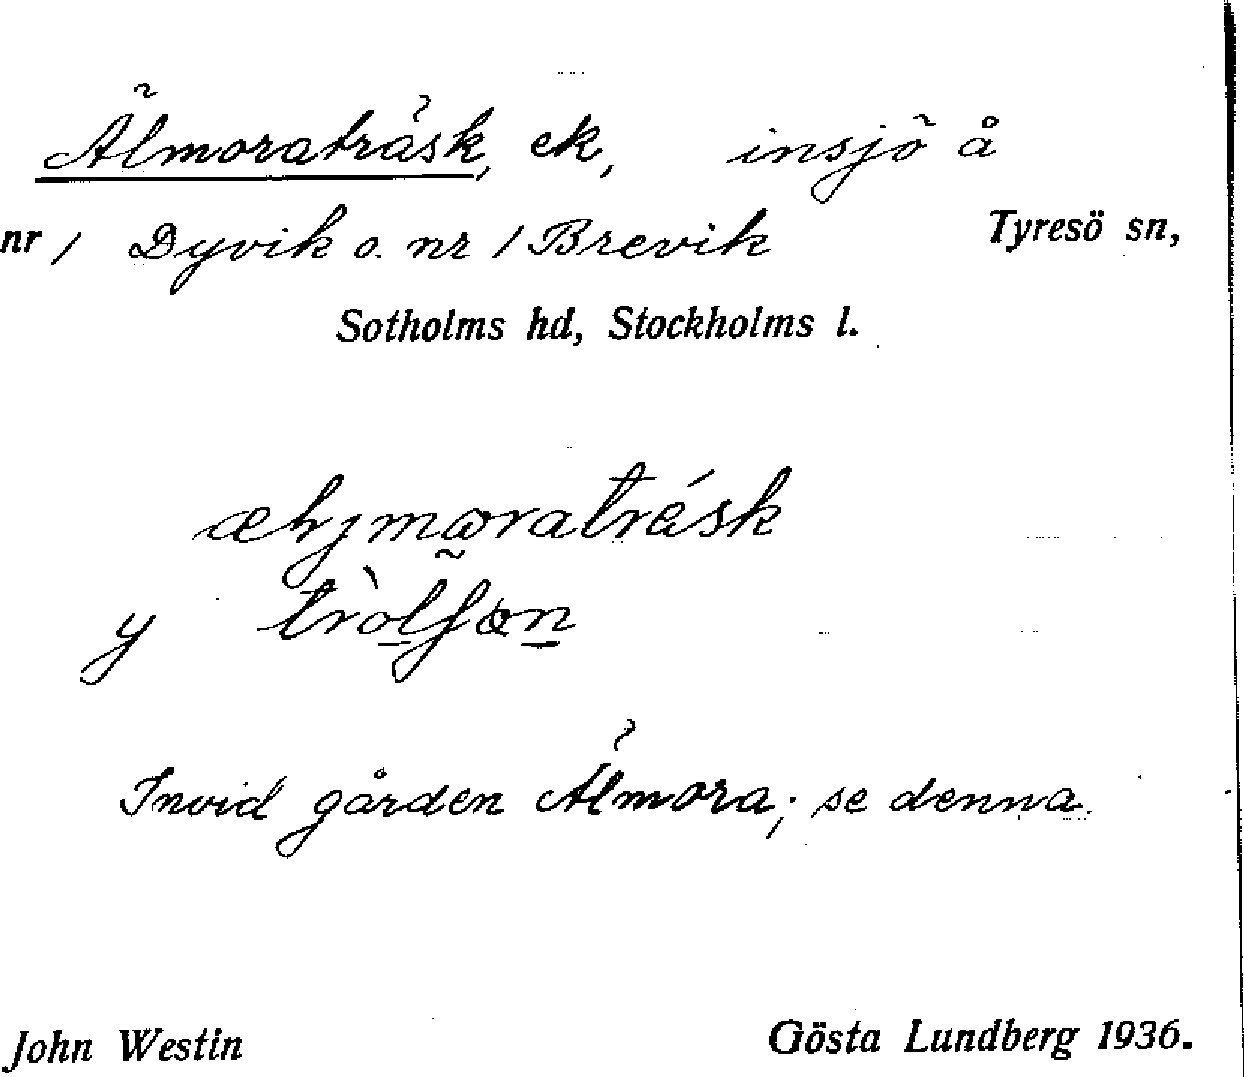 Älmoraträsk, ek, insjö å
nr 1 Dyvik o. nr 1 Brevik Tyresö sn,
Sotholms hd, Stockholms l.
y
Invid gården Älmora; se denna.
John Westin Gösta Lundberg 1936.